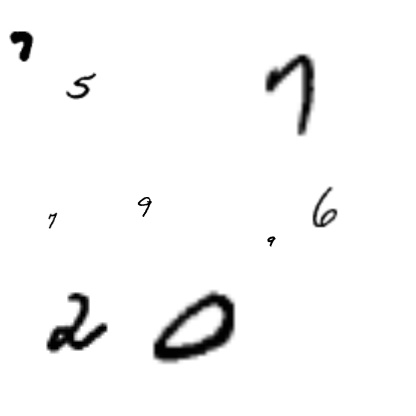 7
5 7
7 9 6
9
2 0